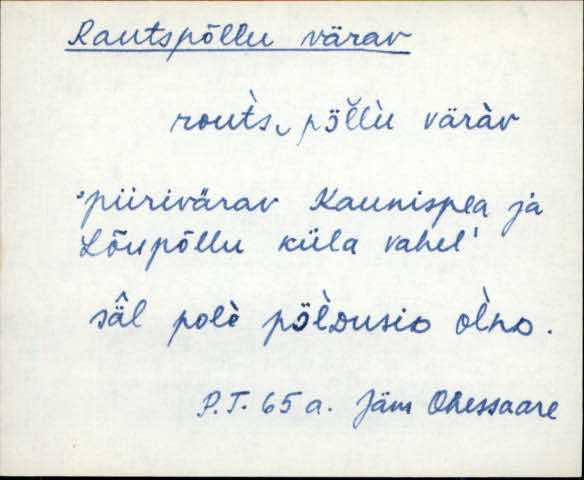 Rautspõllu värav
routs̀ pö̆l̀lù väràv
'piirivärav Kaunispea ja
Lõupõllu küla vahel'
sä̂l polè pöl̀dusiᴅ ol̀no.
P.T. 65 a. Jäm Ohessaare